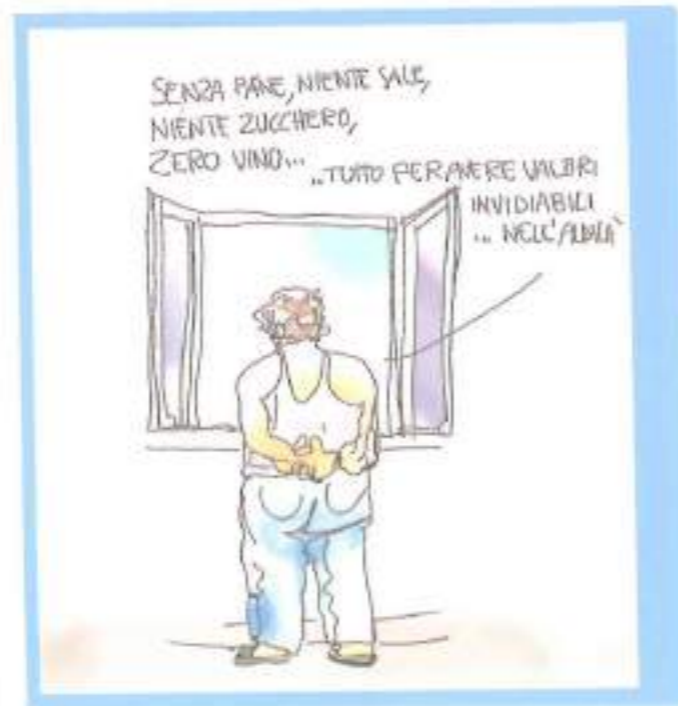 SENZA PANE, NIENTE SALE,
NIENTE ZUCCHERO,
ZERO VINO...
..TUTTO PER AVERE VALORI
INVIDIABILI
... NELL'ALDILÀ